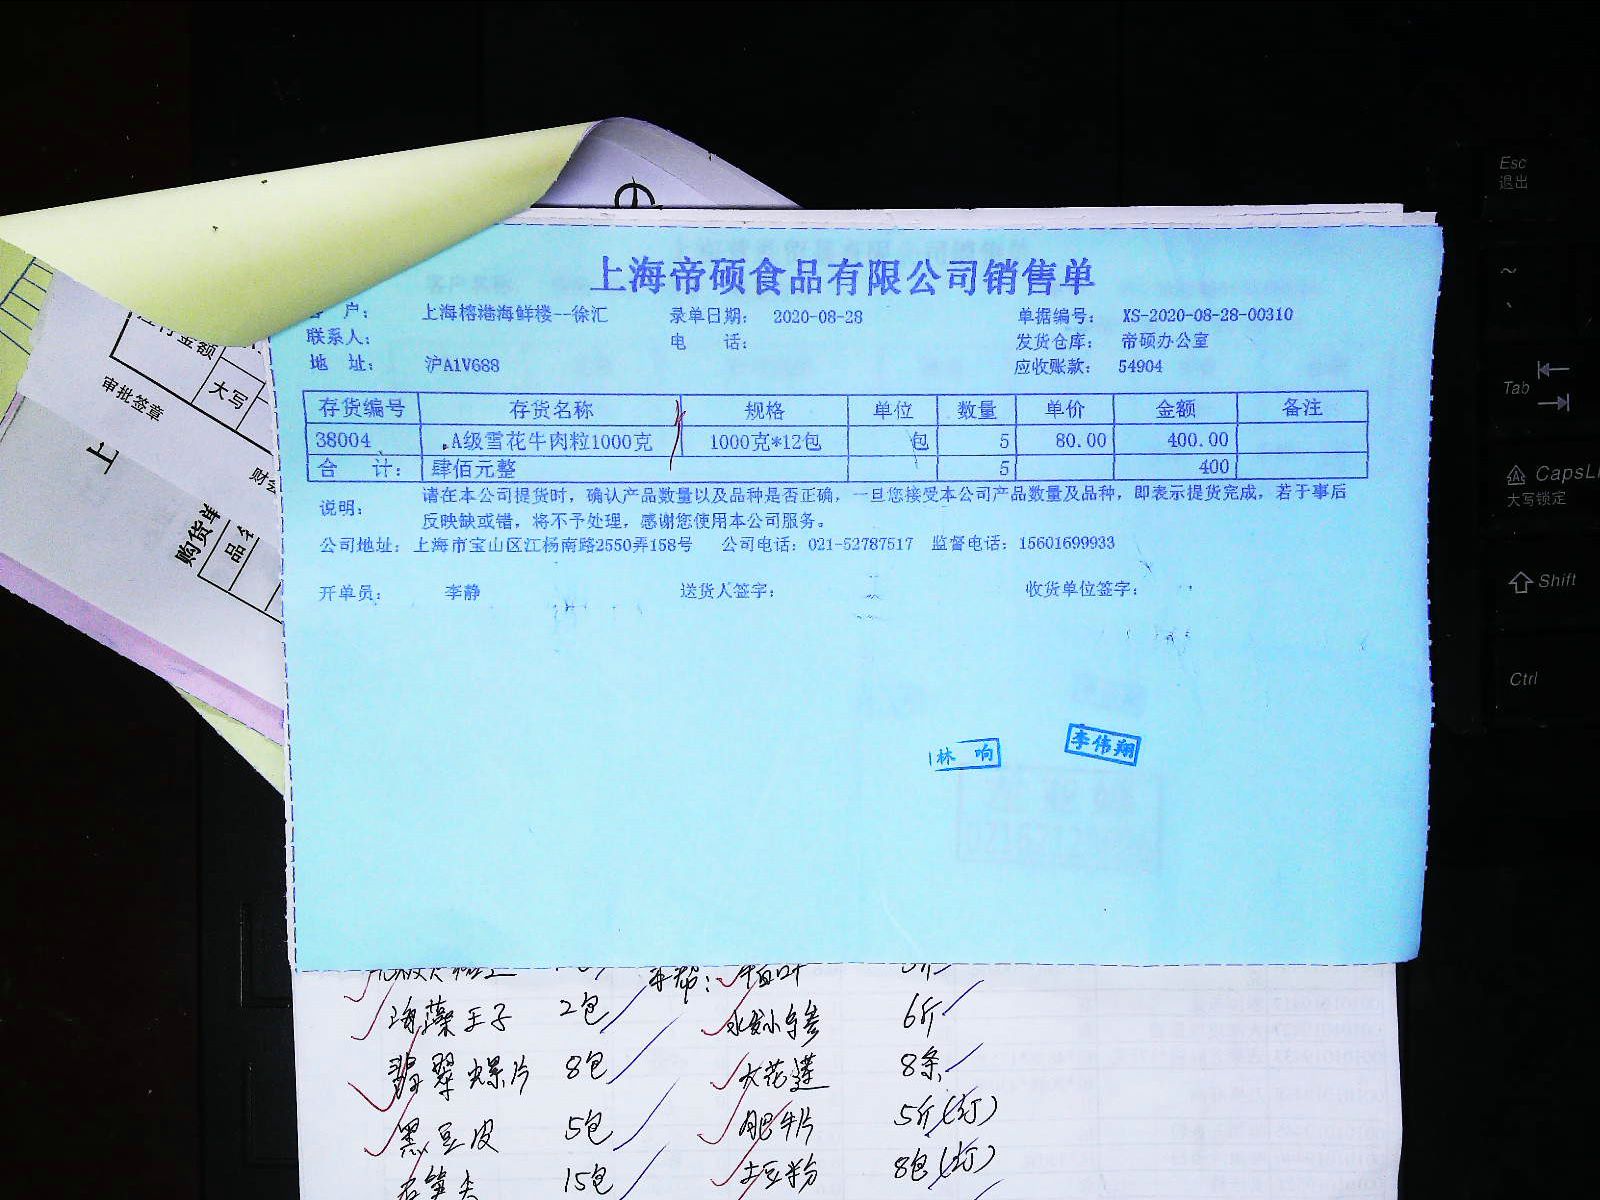 上海帝硕食品有限公司销售单
户： 上海榕港海鲜楼--徐汇 录单日期： 2020-08-28 单据编号： XS-2020-08-28-00310
联系人： 电 话： 发货仓库： 帝硕办公室
地 址： 沪A1V688 应收账款： 54904
存货编号 存货名称 规格 单位 数量 单价 金额 备注
38004 A级雪花牛肉粒1000克 1000克*12包 包 5 80.00 400.00
合 计： 肆佰元整 5 400
说明： 请在本公司提货时，确认产品数量以及品种是否正确，一旦您接受本公司产品数量及品种，即表示提货完成，若于事后
反映缺或错，将不予处理，感谢您使用本公司服务。
公司地址：上海市宝山区江杨南路2550弄158号 公司电话：021-52787517 监督电话：15601699933
开单员： 李静 送货人签字： 收货单位签字：
林 响 李伟翔
金额
大写
审批签章
上
财会
购货单
品名
海藻王子 2包 6斤
翡翠螺片 8包 大花莲 8条
黑豆皮 5包 肥牛片 5斤(打)
15包 土豆粉 8包(打)
Esc
退出
~
Tab
CapsL
大写锁定
Shift
Ctrl